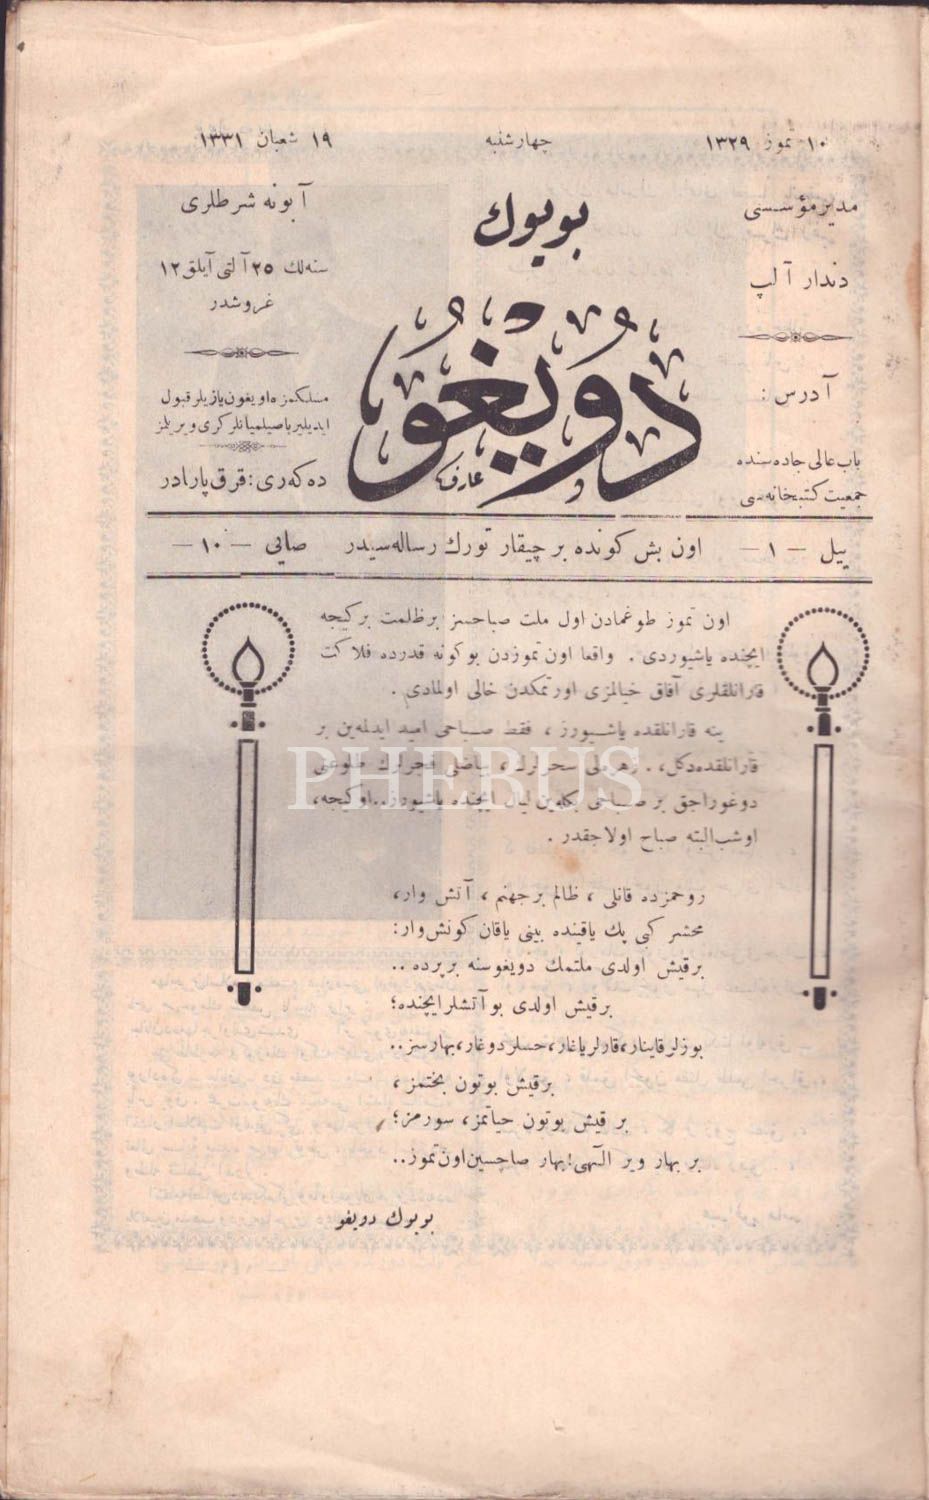 ١٠ تموز ١٣٢٩
چهارشنبه
١٩ شعبان ١٣٣١
مدیر مؤسسی
دندار آلپ
آدرس :
باب عالی جاده‌سنده
جمعیت کتبخانه‌سی
بویوك
دویغو
عارف
آبونه شرطلری
سنه‌لك ٢٥ آلتی آیلق ١٢
غروشدر
مسلکمزه اویغون یازیلر قبول
ایدیلیر باصیلمیانلر کری ویریلمز
ده‌کەری : قرق پارادر
ییل — ١ — اون بش کونده بر چیقار تورك رساله‌سیدر صایی — ١٠ —
اون تموز طوغمادن اول ملت صباحسز بر ظلمت بر کیجه
ایچنده یاشیوردی . واقعا اون تموزدن بو کونه قدرده فلاکت
قارانلقلری آفاق خیالمزی اورتمکدن خالی اولمادی .
ینه قارانلقده یاشیورز ، فقط صباحی امید ایدلمه‌ین بر
قارانلقده دکل ، . زهرلی سحرلرك ، بیاضلی فجرلرك طلوعنی
دوغوراجق بر صباحی بکله‌ین لیال ایچنده یاشیورز.. او کیجه،
او شب البته صباح اولاجقدر .
روحمزده قانلی ، ظالم بر جهنم ، آتش وار،
محشر کبی پك یاقینده بینی یاقان کونش وار:
بر قیش اولدی ملتمك دویغوسنه بر پرده ..
بر قیش اولدی بو آتشلر ایچنده؛
بوزلر قاینار، قارلر یاغار، حسلر دوغار، بهارسز..
بر قیش بوتون بختمز ،
بر قیش بوتون حیاتمز، سورمز؛
بر بهار ویر الٓهی! بهار صاچسین اون تموز..
بویوك دویغو
PHEBUS